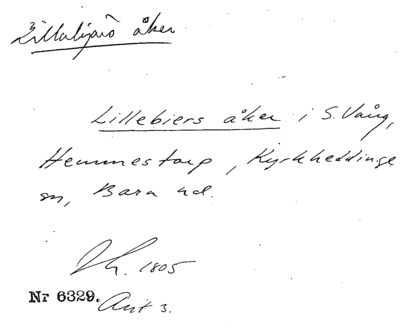 Lillabjärs åker
Lillebiers åker i S. Vång,
Hemmestorp, Kyrkheddinge
sn, Bara hd.
1805
Nr 6329. Akt 3.